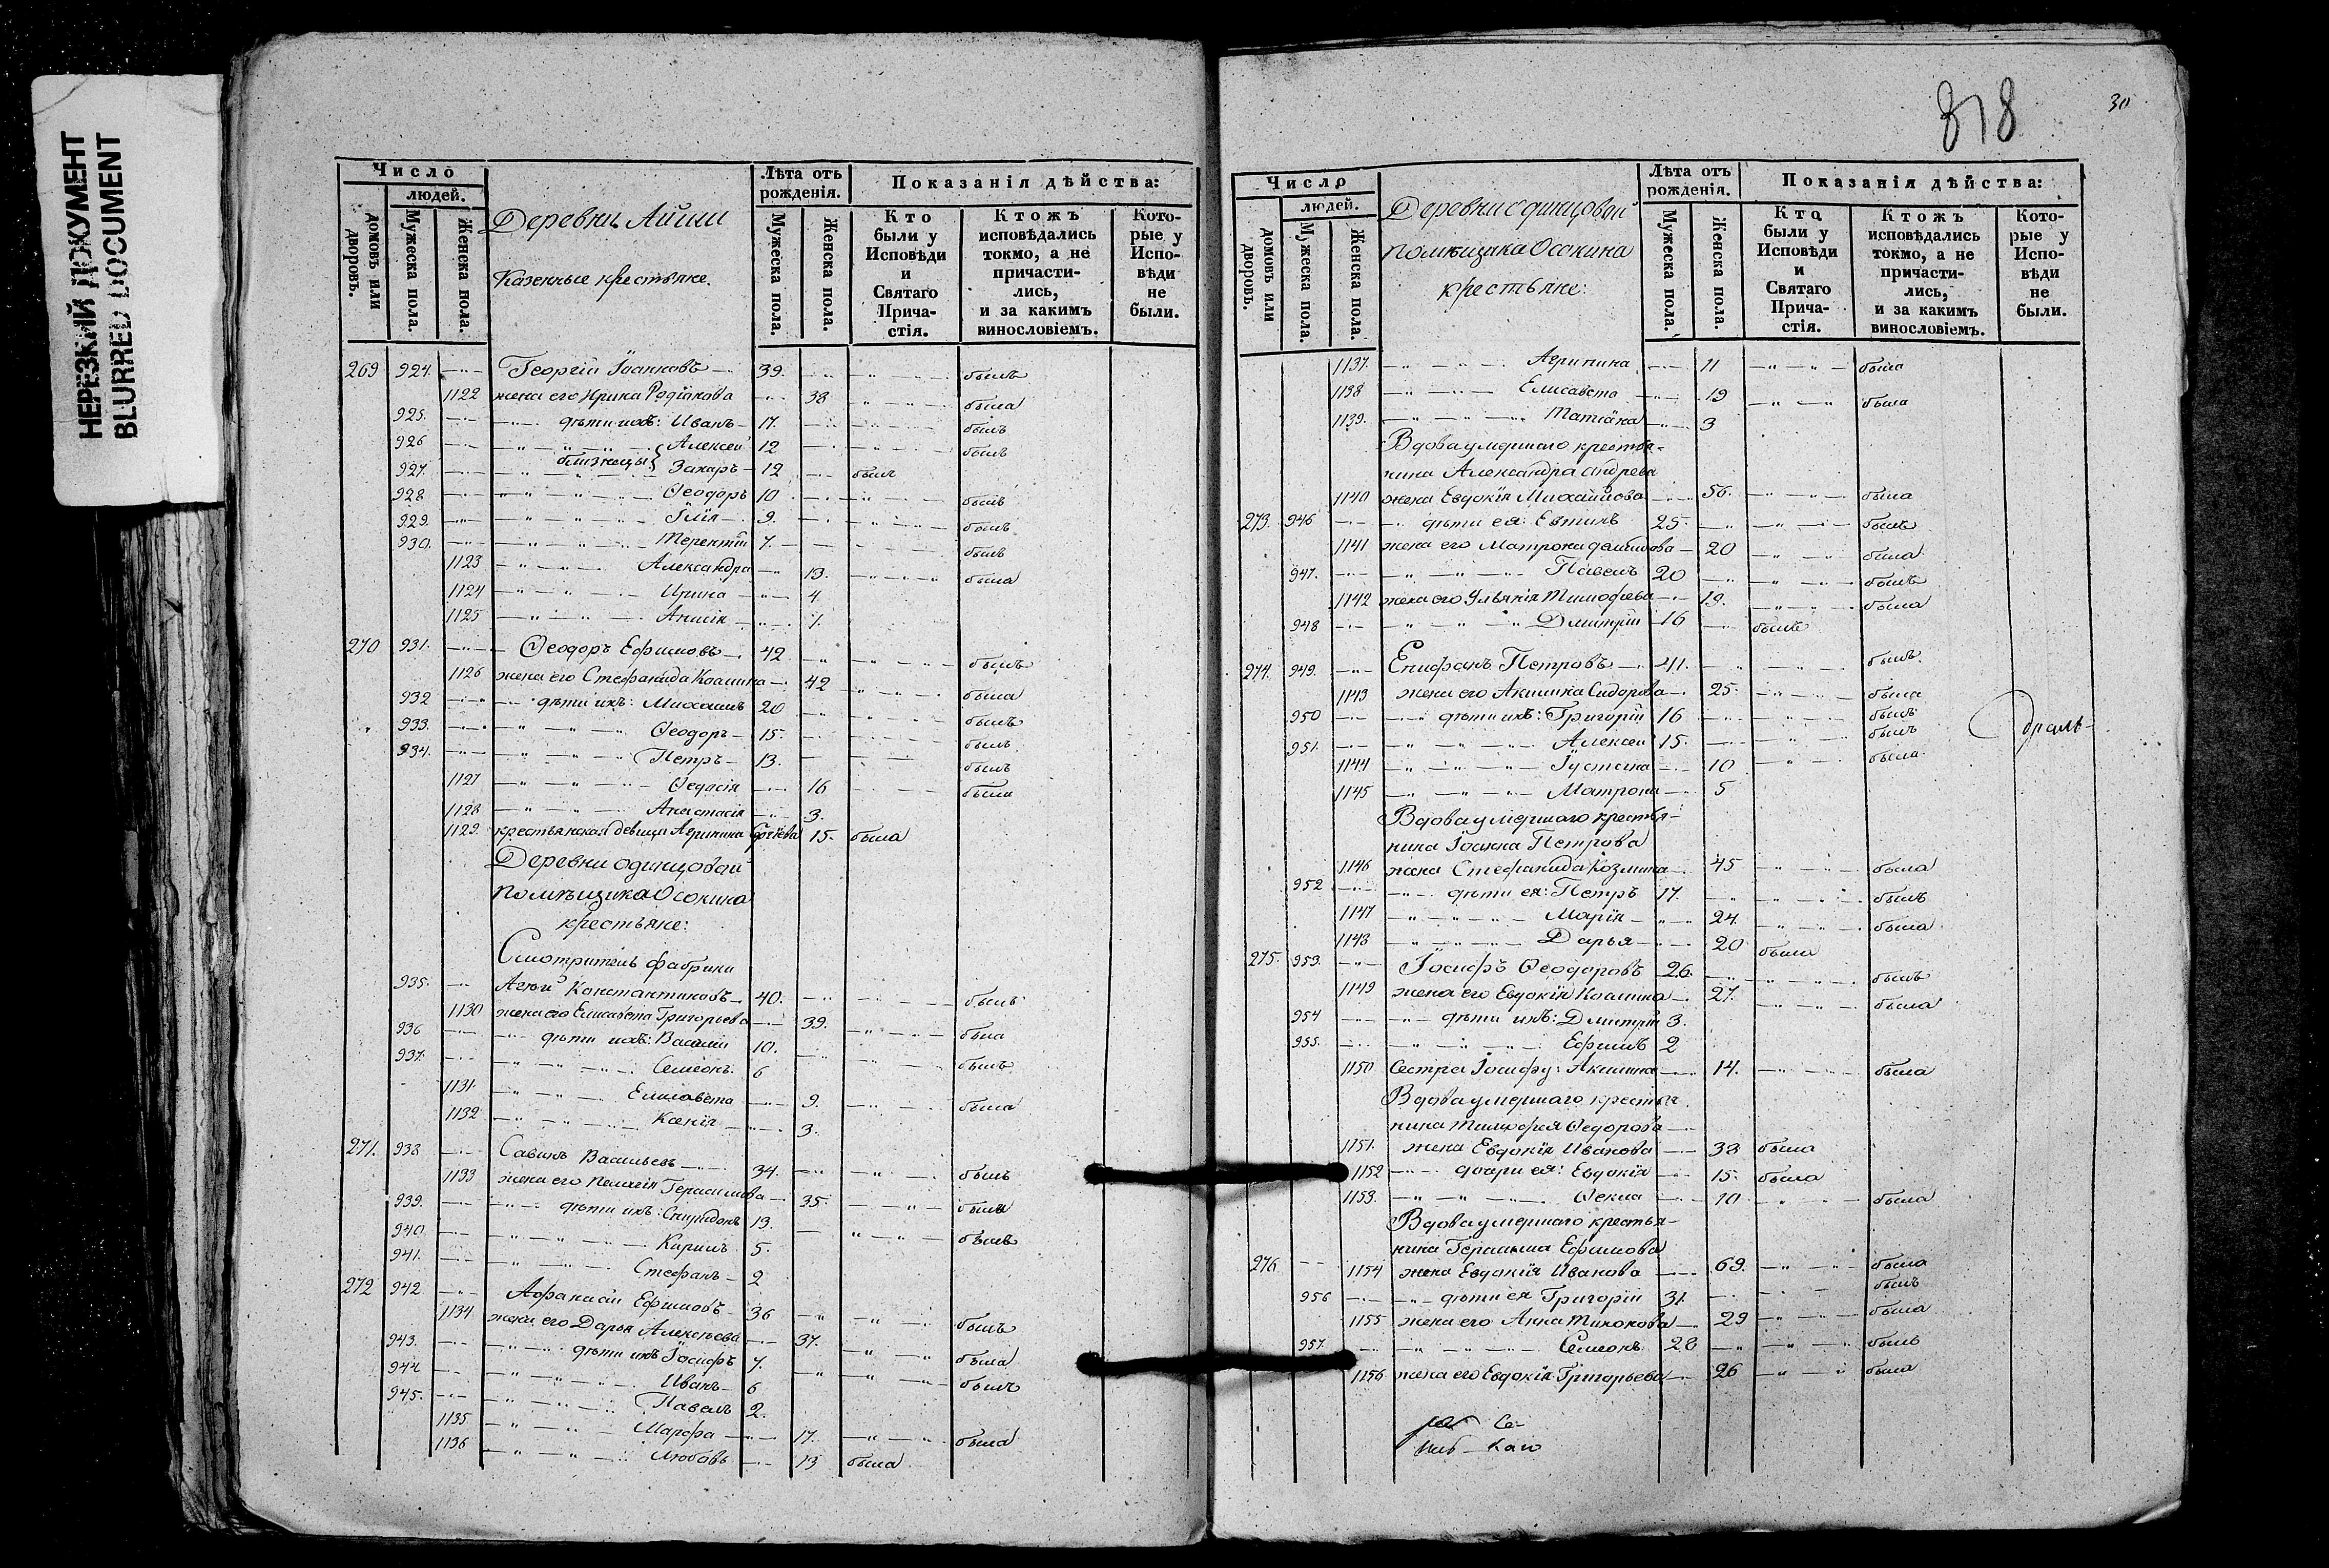 НЕРЕЗКИЙ ДОКУМЕНТ
BLURRED DOCUMENT
Число
людей.
домовъ или дворовъ.
Мужеска пола.
Женска пола.
Деревни Айши
Казенные крестьяне.
Лѣта отъ рожденія.
Мужеска пола.
Женска пола.
Показанія дѣйства:
Кто были у Исповѣди и Святаго Прича-стія.
Ктожъ исповѣдались токмо, а не причасти-лись, и за какимъ винословіемъ.
Кото-рые у Испо-вѣди не были.
269 924. Георгій Іоанновъ 39. былъ
1122 жена его Ирина Родіонова 38 была
925. дѣти ихъ: Иванъ 17. былъ
926 Алексей 12 былъ
близнецы
927. Захаръ 12 былъ
928 Ѳеодоръ 10 былъ
929. Илія 9. былъ
930. Терентій 7. былъ
1123 Александра 13. была
1124 Ирина 4
1125 Анисія 1.
270 931. Ѳеодоръ Ефимовъ 42 былъ
1126 жена его Стефанида Козмина 42 была
932 дѣти ихъ: Михаилъ 20 былъ
933. Ѳеодоръ 15. былъ
934. Петръ 13. былъ
1127 Ѳедосія 16 была
1128 Анастасія 3.
1129 крестьянская девица Агрипина 15. была
Деревни Одинцовой
помѣщика Осокина
крестьяне:
Смотритель фабрики
935. Константиновъ 40. былъ
1130 жена его Елисавета Григорьева 39. была
936 дѣти ихъ: Василій 10. былъ
937. Семеонъ 6
1131. Елисавета 9. была
1132 Ксенія 3.
271. 938 Савинъ Васильевъ 34. былъ
1133 жена его Пелагія Герасимова 35. была
939. дѣти ихъ: Спиридонъ 13. былъ
940 Кирилъ 5.
941. Стефанъ 2
272 942 Афанасій Ефимовъ 36 былъ
1134 жена его Дарья Алексѣева 37. была
943. дѣти ихъ Іосифъ 7. былъ
944 Иванъ 6
945. Павелъ 2.
1135 Марфа 17. была
1136 Любовь 13 была
818
30
Число
людей.
домовъ или дворовъ.
Мужеска пола.
Женска пола.
Деревни Одинцовой
помѣщика Осокина
крестьяне:
Лѣта отъ рожденія.
Мужеска пола.
Женска пола.
Показанія дѣйства:
Кто были у Исповѣди и Святаго Прича-стія.
Ктожъ исповѣдались токмо, а не причасти-лись, и за какимъ винословіемъ.
Кото-рые у Испо-вѣди не были.
1137. Агрипина 11 была
1138 Елисавета 19 была
1139. Татіана 3
Вдова умершаго крестья-
нина Александра Андреева
1140 жена Евдокія Михайлова 56. была
273. 946 дѣти ея: Евтихъ 25. былъ
1141 жена его Матрона 20 была
947. Павелъ 20 былъ
1142 жена его Ульянія Тимофѣева 19. была
948 Дмитрій 16 былъ
274. 949. Епифанъ Петровъ 41. былъ
1143 жена его Акилина Сидорова 25. была
950 дѣти ихъ: Григорій 16 былъ
951. Алексей 15. былъ
1144 Іустина 10 была
1145 Матрона 5
Вдова умершаго крестья-
нина Іоанна Петрова
1146 жена Стефанида Козмина 45 была
952 дѣти ея: Петръ 17. былъ
1147 Марія 24. была
1148 Дарья 20 была
275. 953. Іосифъ Ѳеодоровъ 26. былъ
1149 жена его Евдокія Козмина 27. была
954 дѣти ихъ: Дмитрій 3.
955. Ефимъ 2
1150 Сестра Іосифу: Акилина 14. была
Вдова умершаго крестья-
нина Тимофея Ѳедорова
1151. жена Евдокія Иванова 38 была
1152 дочери ея: Евдокія 15. была
1153. Ѳекла 10 была
Вдова умершаго крестья-
нина Герасима Ефимова
276 1154 жена Евдокія Иванова 69. была
956 дѣти ея Григорій 31. былъ
1155 жена его Анна Тихонова 29 была
957. Семеонъ 28 былъ
1156 жена его Евдокія Григорьева 26 была